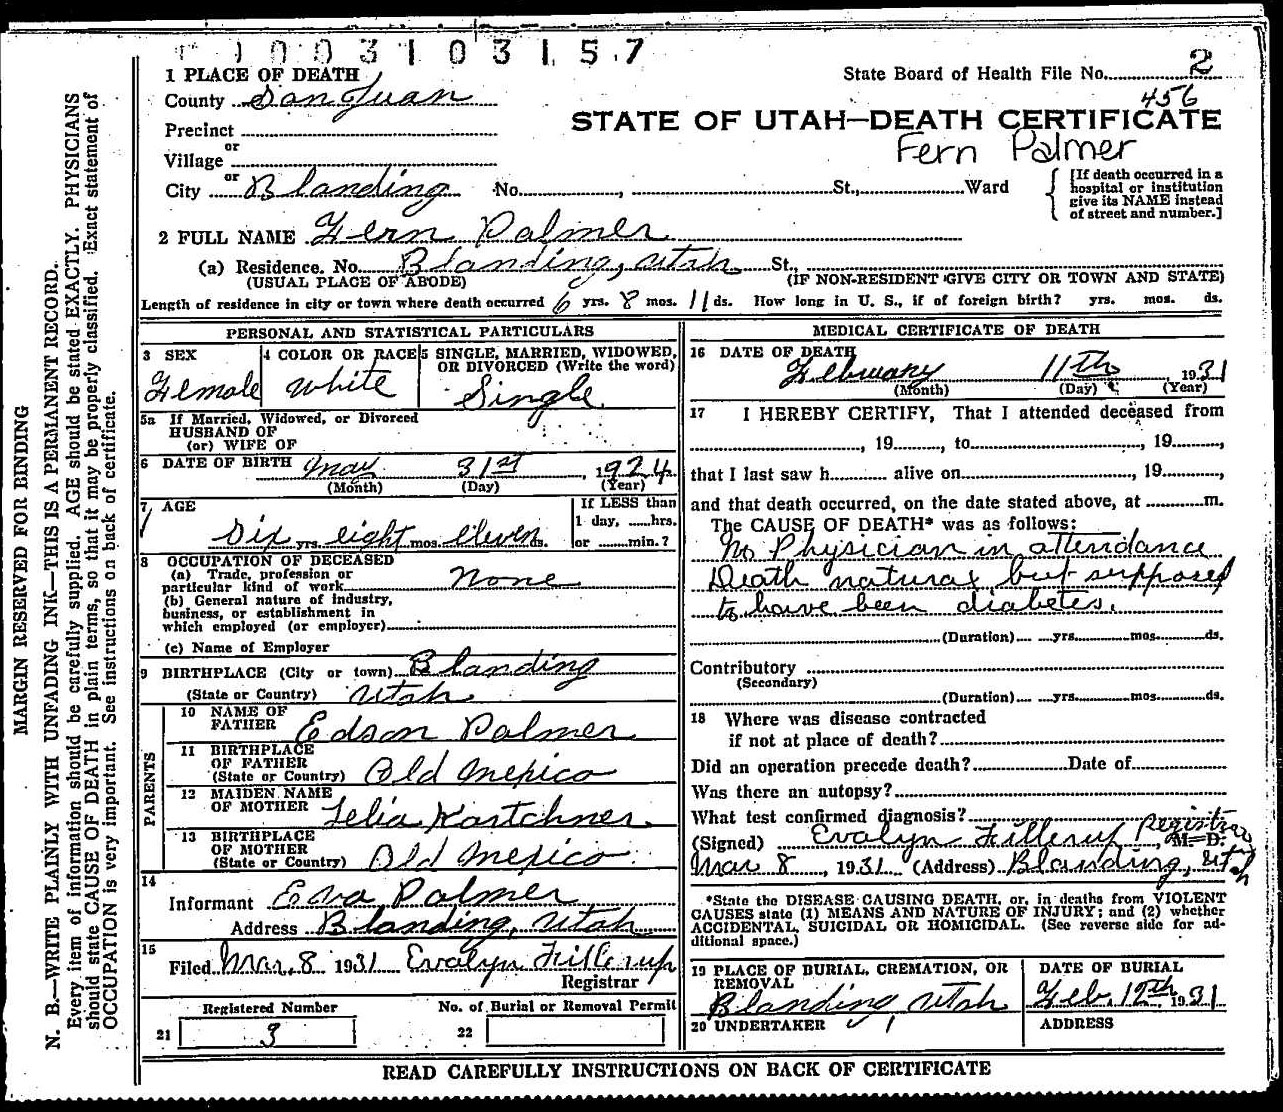 0 0 3 1 0 3 1 5 7
1 PLACE OF DEATH
County San Juan
State Board of Health File No. 2
456
STATE OF UTAH—DEATH CERTIFICATE
Fern Palmer
Precinct
or
Village
or
City Blanding No. , St., Ward
[If death occurred in a
hospital or institution
give its NAME instead
of street and number.]
2 FULL NAME Fern Palmer
(a) Residence. No. Blanding, Utah St.,
(USUAL PLACE OF ABODE) (IF NON-RESIDENT GIVE CITY OR TOWN AND STATE)
Length of residence in city or town where death occurred 6 yrs. 8 mos. 11 ds. How long in U. S., if of foreign birth? yrs. mos. ds.
PERSONAL AND STATISTICAL PARTICULARS
3 SEX
Female
4 COLOR OR RACE
White
5 SINGLE, MARRIED, WIDOWED,
OR DIVORCED (Write the word)
Single
5a If Married, Widowed, or Divorced
HUSBAND OF
(or) WIFE OF
6 DATE OF BIRTH May 31st, 1924
(Month) (Day) (Year)
7 AGE
Six yrs. eight mos. eleven ds.
If LESS than
1 day, hrs.
or min.?
8 OCCUPATION OF DECEASED
(a) Trade, profession or
particular kind of work None
(b) General nature of industry,
business, or establishment in
which employed (or employer)
(c) Name of Employer
9 BIRTHPLACE (City or town) Blanding
(State or Country) Utah
PARENTS
10 NAME OF
FATHER Edson Palmer
11 BIRTHPLACE
OF FATHER
(State or Country) Old Mexico
12 MAIDEN NAME
OF MOTHER Lelia Kartchner
13 BIRTHPLACE
OF MOTHER
(State or Country) Old Mexico
14
Informant Eva Palmer
Address Blanding, Utah
15
Filed Mar. 8 1931 Evalyn Fillerup
Registrar
Registered Number
21 3
No. of Burial or Removal Permit
22
MEDICAL CERTIFICATE OF DEATH
16 DATE OF DEATH
February 11th, 1931
(Month) (Day) (Year)
17 I HEREBY CERTIFY, That I attended deceased from
, 19 , to , 19 ,
that I last saw h alive on , 19 ,
and that death occurred, on the date stated above, at m.
The CAUSE OF DEATH* was as follows:
No Physician in attendance
Death natural but supposed
to have been diabetes.
(Duration) yrs. mos. ds.
Contributory
(Secondary)
(Duration) yrs. mos. ds.
18 Where was disease contracted
if not at place of death?
Did an operation precede death? Date of
Was there an autopsy?
What test confirmed diagnosis?
(Signed) Evalyn Fillerup Registrar, M. D.
Mar 8, 1931 (Address) Blanding, Utah
*State the DISEASE CAUSING DEATH, or, in deaths from VIOLENT
CAUSES state (1) MEANS AND NATURE OF INJURY; and (2) whether
ACCIDENTAL, SUICIDAL OR HOMICIDAL. (See reverse side for ad-
ditional space.)
19 PLACE OF BURIAL, CREMATION, OR
REMOVAL
Blanding, Utah
DATE OF BURIAL
Feb. 12th, 1931
20 UNDERTAKER
ADDRESS
READ CAREFULLY INSTRUCTIONS ON BACK OF CERTIFICATE
MARGIN RESERVED FOR BINDING
N. B.—WRITE PLAINLY WITH UNFADING INK—THIS IS A PERMANENT RECORD.
Every item of information should be carefully supplied. AGE should be stated EXACTLY. PHYSICIANS
should state CAUSE OF DEATH in plain terms, so that it may be properly classified. Exact statement of
OCCUPATION is very important. See instructions on back of certificate.